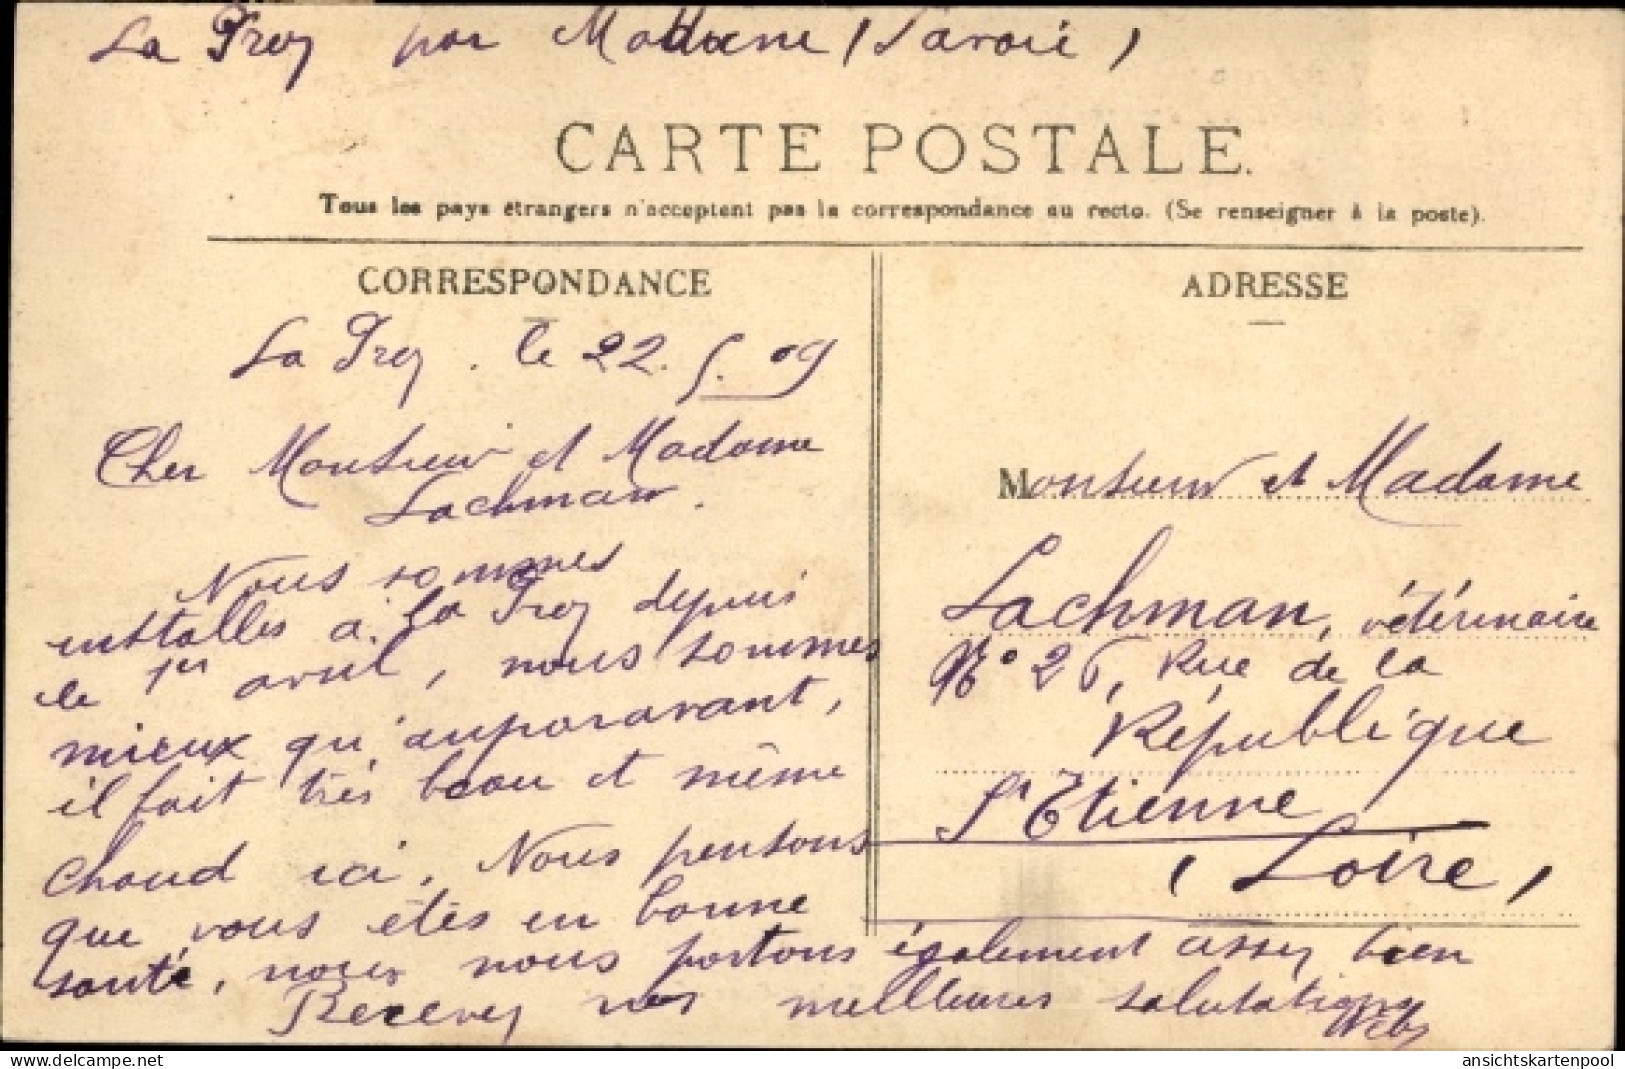 La Praz par Modane (Savoie)
CARTE POSTALE.
Tous les pays étrangers n'acceptent pas la correspondance au recto. (Se renseigner à la poste).
CORRESPONDANCE
La Praz. le 22. 5. 09
Cher Monsieur et Madame
Lachman.
Nous sommes
installés à la Praz depuis
le 1er avril, nous sommes
mieux qu'auparavant,
il fait très beau et même
chaud ici. Nous pensons
que vous êtes en bonne
santé, nous nous portons également assez bien
Recevez nos meilleures salutations
ADRESSE
Monsieur et Madame
Lachman, vétérinaire
N° 26, Rue de la
République
St Etienne
(Loire)
ansichtskartenpool